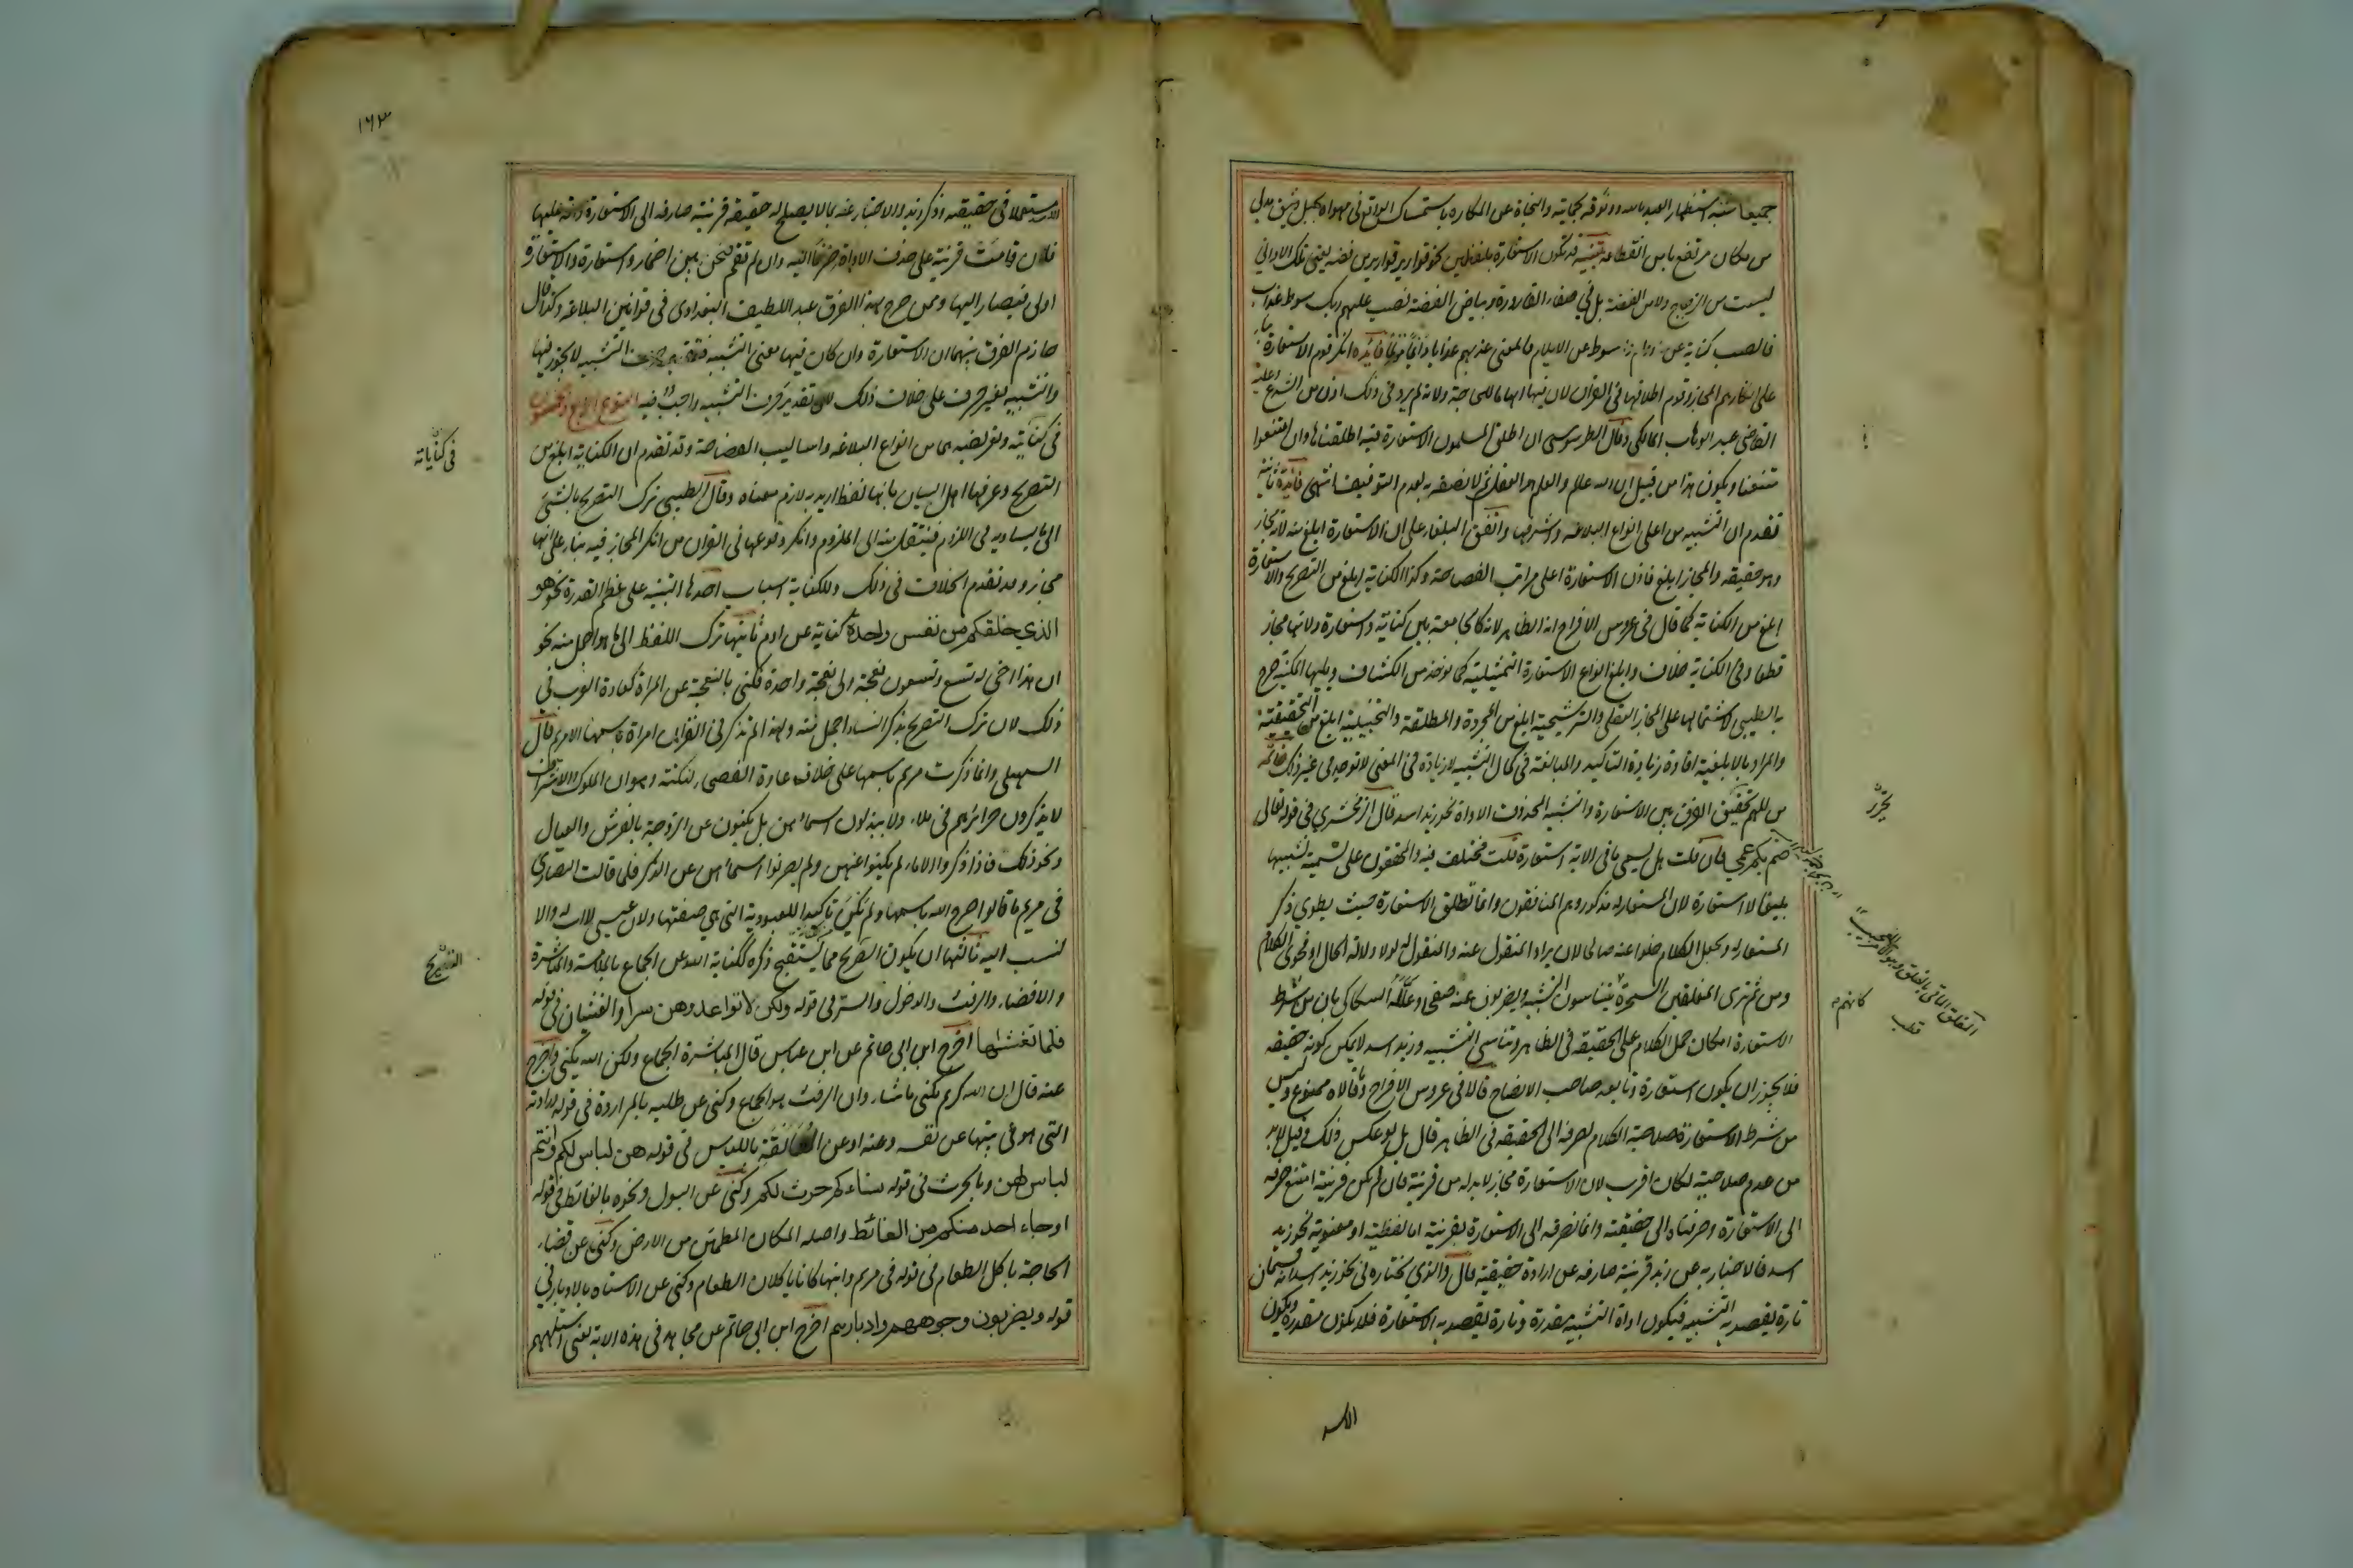 جميعا شبه استظهار العبد بالله ووثوقه بحمايته والنجاة عن المكاره باستمساك الواقع في مهواة بحبل وثيق مدلى
من مكان مرتفع يامن انقطاعه تنبيه قد تكون الاستعارة بلفظين نحو قوارير قوارير من فضه يعنى تلك الاوانى
ليست من الزجاج ولا من الفضة بل في صفاء القارورة وبياض الفضة فصب عليهم ربك سوط عذاب
فالصب كناية عن الدوام والسوط عن الايلام فالمعنى عذبهم عذابا دائما مؤلما فائده انكر قوم الاستعارة بناء
على انكارهم المجاز وقوم اطلاقها في القران لان فيها ايهاما للحاجة ولانه لم يرد في ذلك اذن من الشرع وعليه
القاضى عبد الوهاب المالكي وقال الطرسوسى ان اطلق المسلمون الاستعارة فيه اطلقناها وان امتنعوا
امتنعنا ويكون هذا من قبيل ان الله عالم والعلم هو العقل ثم لا نصفه به لعدم التوقيف انتهى فائدة ثانية
تقدم ان التشبيه من اعلى انواع البلاغه واشرفها واتفق البلغاء على ان الاستعارة ابلغ منه لانه مجاز
وهو حقيقه والمجاز ابلغ فاذن الاستعارة اعلى مراتب الفصاحة وكذا الكناية ابلغ من التصريح والاستعارة
ابلغ من الكناية كما قال في عروس الافراح انه الظاهر لانها كالجامعة بين كناية واستعارة ولانها مجاز
قطعا وفي الكناية خلاف وابلغ انواع الاستعارة التمثيلية كما يوخذ من الكشاف ويليها المكنية صرح
به الطيبى لاشتمالها على المجاز العقلى والترشيحية ابلغ من المجردة والمطلقة والتخييلية ابلغ من التحقيقية
والمراد بالابلغية افادة زيادة التاكيد والمبالغة في كمال التشبيه لا زيادة في المعنى لا توجد في غير ذلك خاتمه
من المهم تحقيق الفرق بين الاستعارة والتشبيه المحذوف الاداة نحو زيد اسد قال الزمخشري في قوله تعالى
صم بكم عمي فان قلت هل يسمى ما في الاية استعارة قلت مختلف فيه والمحققون على تسميته تشبيها
بليغا لا استعارة لان المستعار له مذكور وهم المنافقون وانما تطلق الاستعارة حيث يطوى ذكر
المستعار له ويجعل الكلام خلوا عنه صالحا لان يراد المنقول عنه والمنقول له لولا دلالة الحال او فحوى الكلام
ومن ثم ترى المفلقين السحرة يتناسون التشبيه ويضربون عنه صفحا وعلله السكاكى بان من شرط
الاستعارة امكان حمل الكلام على الحقيقه في الظاهر وتناسى التشبيه وزيد اسد لا يمكن كونه حقيقه
فلا يجوز ان يكون استعارة وتابعه صاحب الايضاح قال في عروس الافراح وما قالاه ممنوع وليس
من شرط الاستعارة صلاحية الكلام لصرفه الى الحقيقه في الظاهر قال بل لو عكس ذلك وقيل لا بد
من عدم صلاحيته لكان اقرب لان الاستعارة مجاز لا بد له من قرينة فان لم تكن قرينة امتنع صرفه
الى الاستعارة وصرفناه الى حقيقته وانما نصرفه الى الاستعارة بقرينة اما لفظية او معنوية نحو زيد
اسد فالاخبار به عن زيد قرينة صارفه عن ارادة حقيقته قال والذي نختاره في نحو زيد اسد انه قسمان
تارة يقصد به التشبيه فتكون اداة التشبيه مقدرة وتارة يقصد به الاستعارة فلا تكون مقدرة ويكون
الاسد
يحرر
كانهم
قطب
١٦٣
الاسد مستعملا في حقيقته وذكر زيد والاخبار عنه بما لا يصلح له حقيقه قرينة صارفه الى الاستعارة دالة عليها
فان قامت قرينة على حذف الاداة صرنا اليه وان لم تقم فنحن بين اضمار واستعارة والاستعارة
اولى فيصار اليها وممن صرح بهذا الفرق عبد اللطيف البغدادى في قوانين البلاغه وكذا قال
حازم الفرق بينهما ان الاستعارة وان كان فيها معنى التشبيه فتقدير حرف التشبيه لا يجوز فيها
والتشبيه بغير حرف على خلاف ذلك لان تقدير حرف التشبيه واجب فيه النوع الرابع والخمسون
في كنايته وتعريضه هما من انواع البلاغه واساليب الفصاحة وقد تقدم ان الكناية ابلغ من
التصريح وعرفها اهل البيان بانها لفظ اريد به لازم معناه وقال الطيبى ترك التصريح بالشئ
الى ما يساويه في اللزوم فينتقل منه الى الملزوم وانكر وقوعها في القران من انكر المجاز فيه بناء على انها
مجاز وقد تقدم الخلاف في ذلك وللكناية اسباب احدها التنبيه على عظم القدرة نحو هو
الذي خلقكم من نفس واحدة كناية عن ادم ثانيها ترك اللفظ الى ما هو اجمل منه نحو
ان هذا اخى له تسع وتسعون نعجة ولى نعجة واحدة فكنى بالنعجة عن المراة كعادة العرب في
ذلك لان ترك التصريح بذكر النساء اجمل منه ولهذا لم تذكر في القران امراة باسمها الا مريم قال
السهيلى وانما ذكرت مريم باسمها على خلاف عادة الفصحاء لنكتة وهو ان الملوك والاشراف
لا يذكرون حرائرهم في ملاء ولا يبتذلون اسمائهن بل يكنون عن الزوجة بالفرش والعيال
ونحو ذلك فاذا ذكروا الاماء لم يكنوا عنهن ولم يصونوا اسمائهن عن الذكر فلما قالت النصارى
في مريم ما قالوا صرح الله باسمها ولم يكن تاكيدا للعبودية التى هي صفتها ولان عيسى لا اب له والا
لنسب اليه ثالثها ان يكون التصريح مما يستقبح ذكره ككناية الله عن الجماع بالملامسة والمباشرة
والافضاء والرفث والدخول والسر في قوله ولكن لا تواعدوهن سرا والغشيان في قوله
فلما تغشاها اخرج ابن ابى حاتم عن ابن عباس قال المباشرة الجماع ولكن الله يكنى واخرج
عنه قال ان الله كريم يكنى ما شاء وان الرفث هو الجماع وكنى عن طلبه بالمراودة في قوله وراودته
التى هو في بيتها عن نفسه وعنه او عن المعانقة باللباس في قوله هن لباس لكم وانتم
لباس لهن وبالحرث في قوله نساءكم حرث لكم وكنى عن البول ونحوه بالغائط في قوله
او جاء احد منكم من الغائط واصله المكان المطمئن من الارض وكنى عن قضاء
الحاجة باكل الطعام في قوله في مريم وابنها كانا ياكلان الطعام وكنى عن الاستاه بالادبار في
قوله ويضربون وجوههم وادبارهم اخرج ابن ابى حاتم عن مجاهد في هذه الاية يعنى استاههم
في كناياته
التصريح